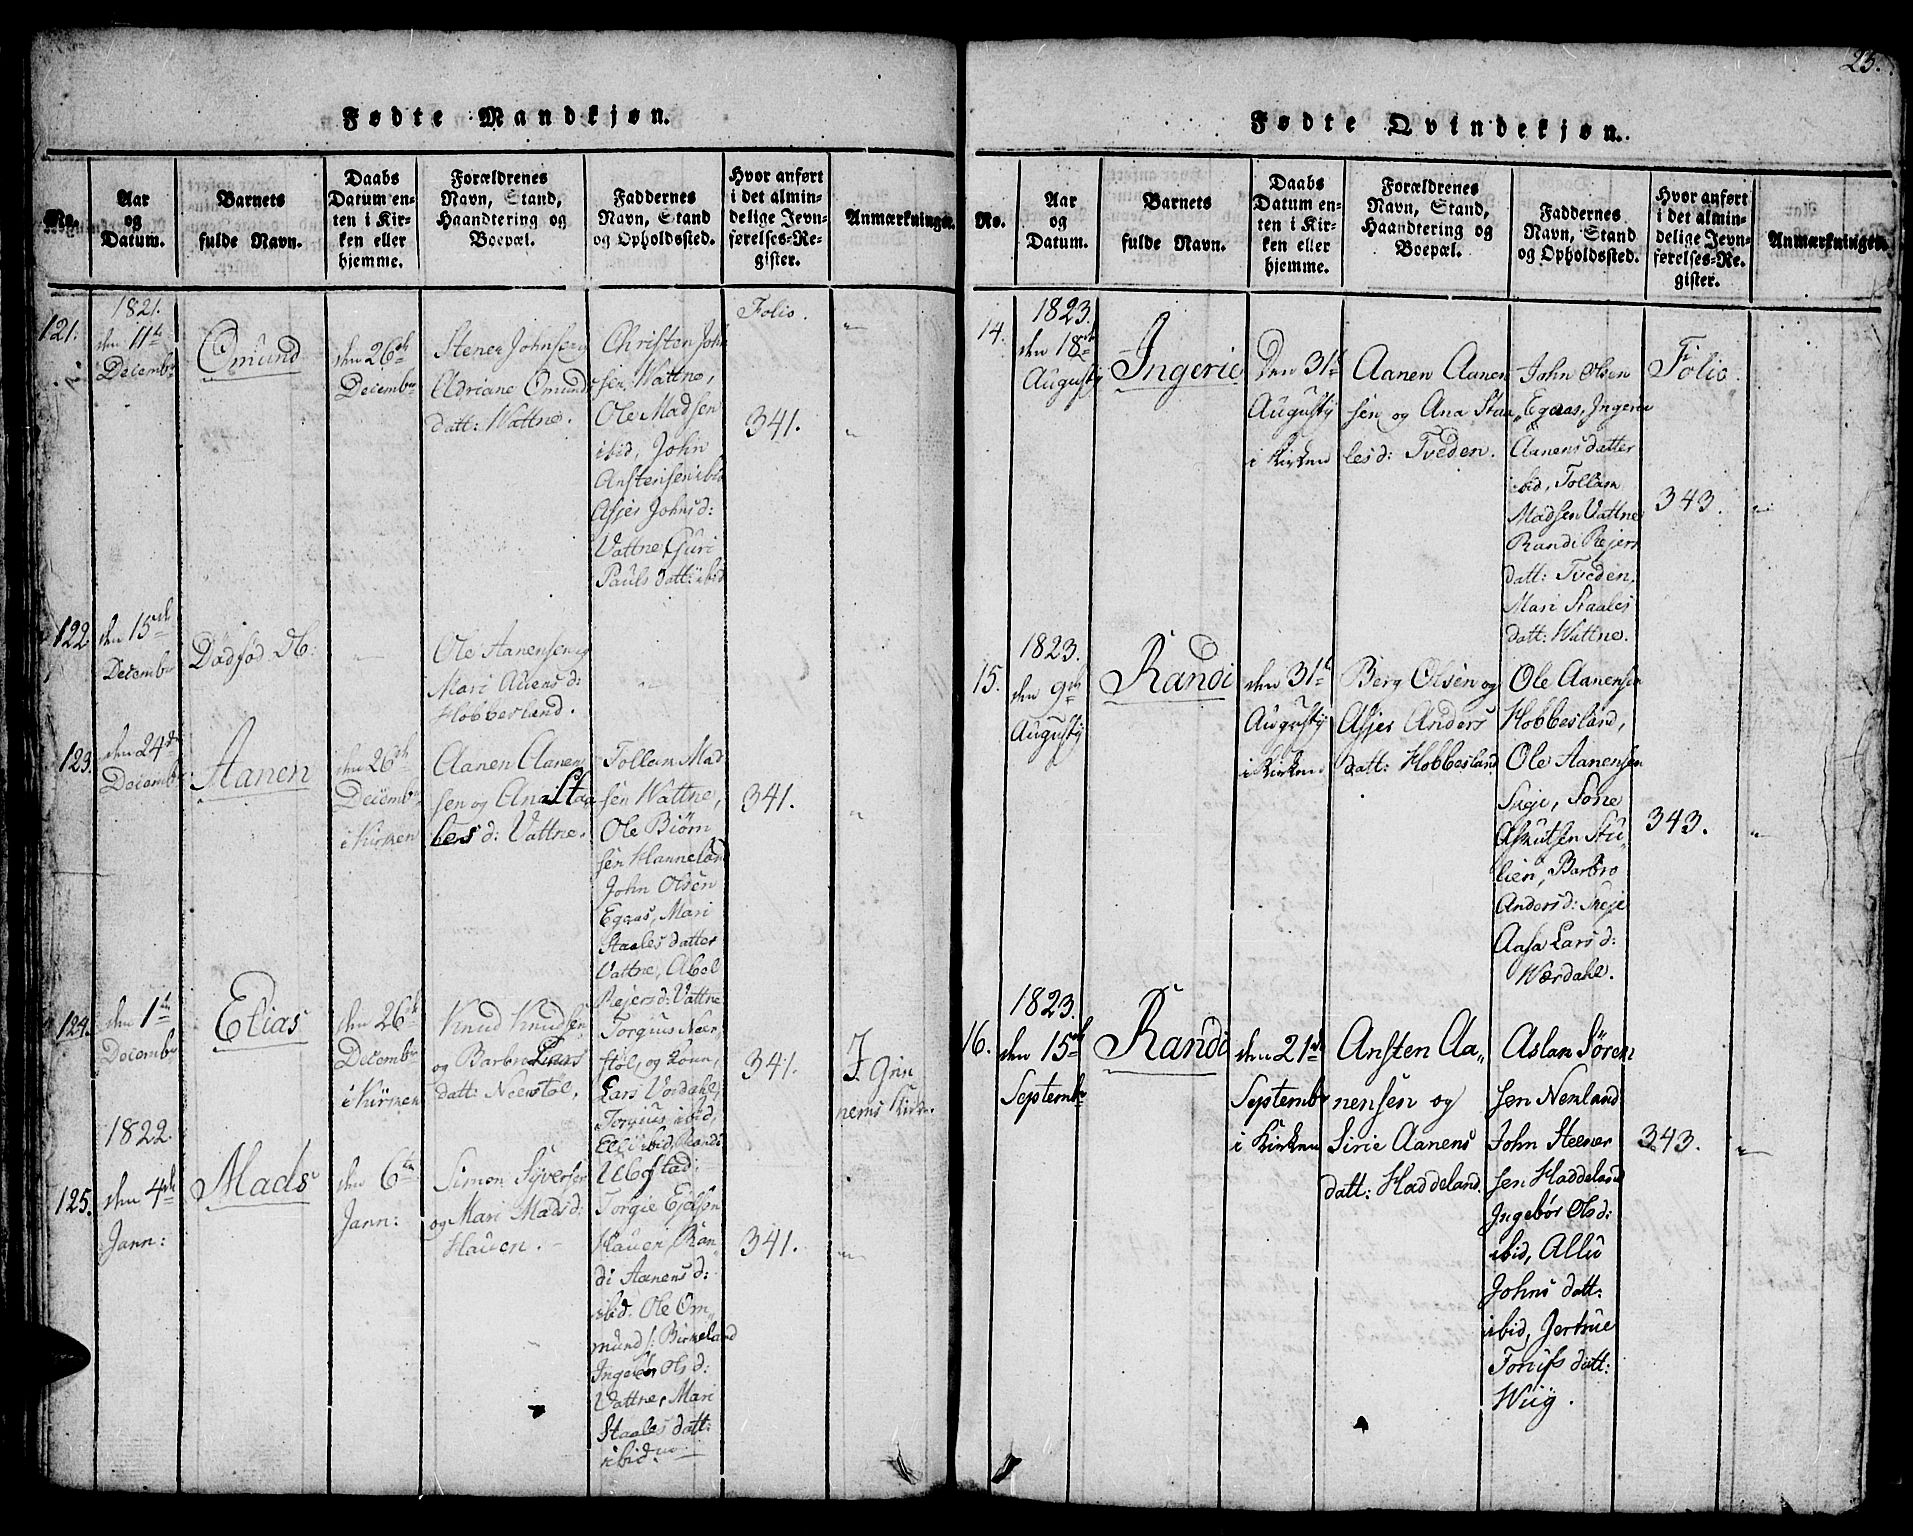 Fødte Mandkjøn.
No.
Aar
og
Datum.
Barnets
fulde Navn.
Daabs
Datum en-
ten i Kir-
ken eller
hjemme.
Forældrenes
Navn, Stand,
Haandtering og
Boepæl.
Faddernes
Navn, Stand
og Opholdssted.
Hvor anført
i det almin-
delige Jevn-
førelses-Re-
gister.
Anmærkninger.
121.
1821.
den 11te
Decembr
Omund
den 26de
Decembr
Stener Johnsen og
Adriane Omunds
datt: Wattne.
Christen John
sen, Wattne,
Ole Madsen
ibid, John
Anstensen ibid
Asjer Johnsd:
Vattne, Guri
Pauls datt: ibid
Folio.
341.
"
"
122.
den 15de
Decembr
Dødfød
"
Ole Aanensen og
Mari Auensd:
Hobbesland.
"
123.
den 24de
Decembr
Aanen
den 26de
Decembr
i Kirken
Aanen Aanen
sen og Ana Staa
lesd: Vattne.
Tollem Mad
sen Wattne,
Ole Biørn
sen Hanneland
John Olsen
Egaas, Mari
Staalesdatter
Vattne, Abel
Rejersd: Vattne
341.
"
124.
den 1te
Decembr
Elias
den 26de
Decembr
i Kirken
Knud Knudsen
og Barbro Lars
datt: Neerstøl,
Torgius Neer
støl, og Kone,
Lars Vordahl,
Torgius ibid,
Elli ibid, Randi
Ubostad:
341.
I Grin
nems Kirke.
1822.
125.
den 4de
Jann:
Mads
den 6te
Jann:
Simon Syversen
og Mari Madsd:
Hauen.
Torgie Ejelsen
Hauen, Ran
di Aanensd:
ibid. Ole Om
munds: Birkeland
Ingeb Olsd:
Vattne, Mari
Staales datt:
ibid.
341.
"
23.
Fødte Qvindekjøn.
No.
Aar
og
Datum.
Barnets
fulde Navn.
Daabs
Datum en-
ten i Kir-
ken eller
hjemme.
Forældrenes
Navn, Stand,
Haandtering og
Boepæl.
Faddernes
Navn, Stand
og Opholdssted.
Hvor anført
i det almin-
delige Jevn-
førelses-Re-
gister.
Anmærkninger.
14.
1823.
den 18de
Augusty
Ingerie
Den 31te
Augusty
i Kirken
Aanen Aanen
sen og Ana Staa
lesd: Tveden.
John Olsen
Egaas, Ingerie
Aanensdatter
ibid, Tollem
Madsen Vattne
Randi Rejers
datt: Tveden.
Mari Staales
datt: Wattne.
Folio.
343.
"
15.
1823.
den 9de
Augusty
Randi
den 31te
Augusty
i Kirken
Berg Olsen og
Asjer Anders
datt: Hobbesland
Ole Aanensen
Hobbesland,
Ole Aanensen
Skeje, Sone
Askutsen Stu-
lien, Barbro
Andersd: Skeje
Aasa Larsd:
Wærdahl.
343.
"
16.
1823.
den 15de
Septembr
Randi
den 21de
Septembr
i Kirken
Ansten Aa-
nensen og
Sirie Aanens
datt: Haddeland.
Aslan Søren
sen Nenland
John Steener
sen Haddeland
Ingebør Olsd:
ibid, Allu
Johns datt:
ibid, Jertrue
Toniss datt:
Wiig.
343.
"